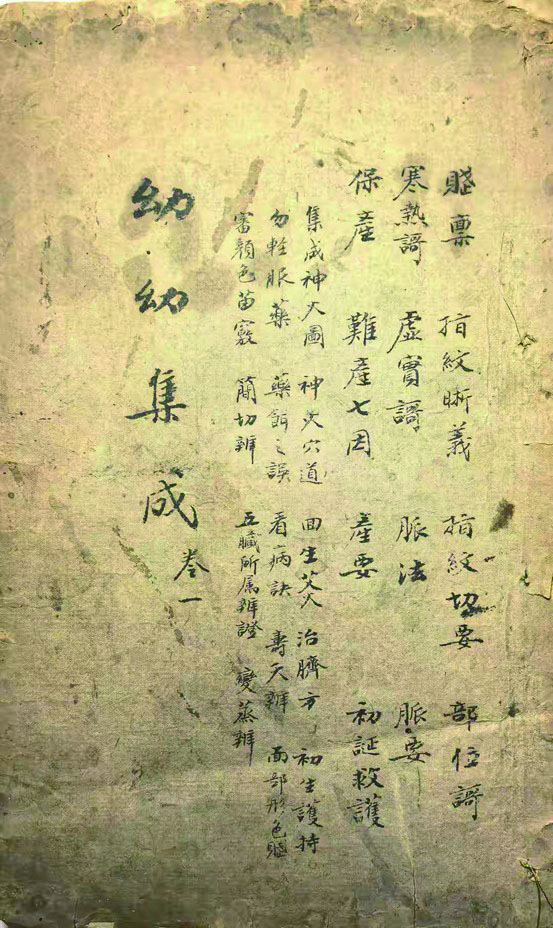 賦稟 指紋晰義 指紋切要 部位謌
寒熱謌 虛實謌 脈法 脈要
保產 難產七因 產要 初誕救護
集成神火圖 神火穴道 回生艾火 治臍方 初生護持
勿輕服藥 藥餌之誤 看病訣 壽夭辨 面部形色賦
審顏色苗竅 簡切辨 五臟所属辨證 變蒸辨
幼幼集成 卷一